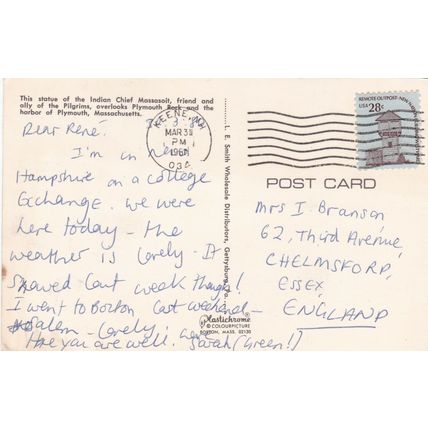 This statue of the Indian Chief Massasoit, friend and
ally of the Pilgrims, overlooks Plymouth Rock and the
harbor of Plymouth, Massachusetts.
Dear René.
I'm in New
Hampshire on a college
Exchange. We were
here today - the
weather is lovely - It
snowed last week though!
I went to Boston last weekend -
Salem - lovely.
Hope you are well. Love
Sarah (Green!)
L. E. Smith Wholesale Distributors, Gettysburg, Pa.
Plastichrome®
© COLOURPICTURE
BOSTON, MASS. 02130
KEENE, NH
MAR 31
PM
POST CARD
REMOTE OUTPOST
USA 28c
Mrs I. Branson
62, Third Avenue
CHELMSFORD,
ESSEX
ENGLAND